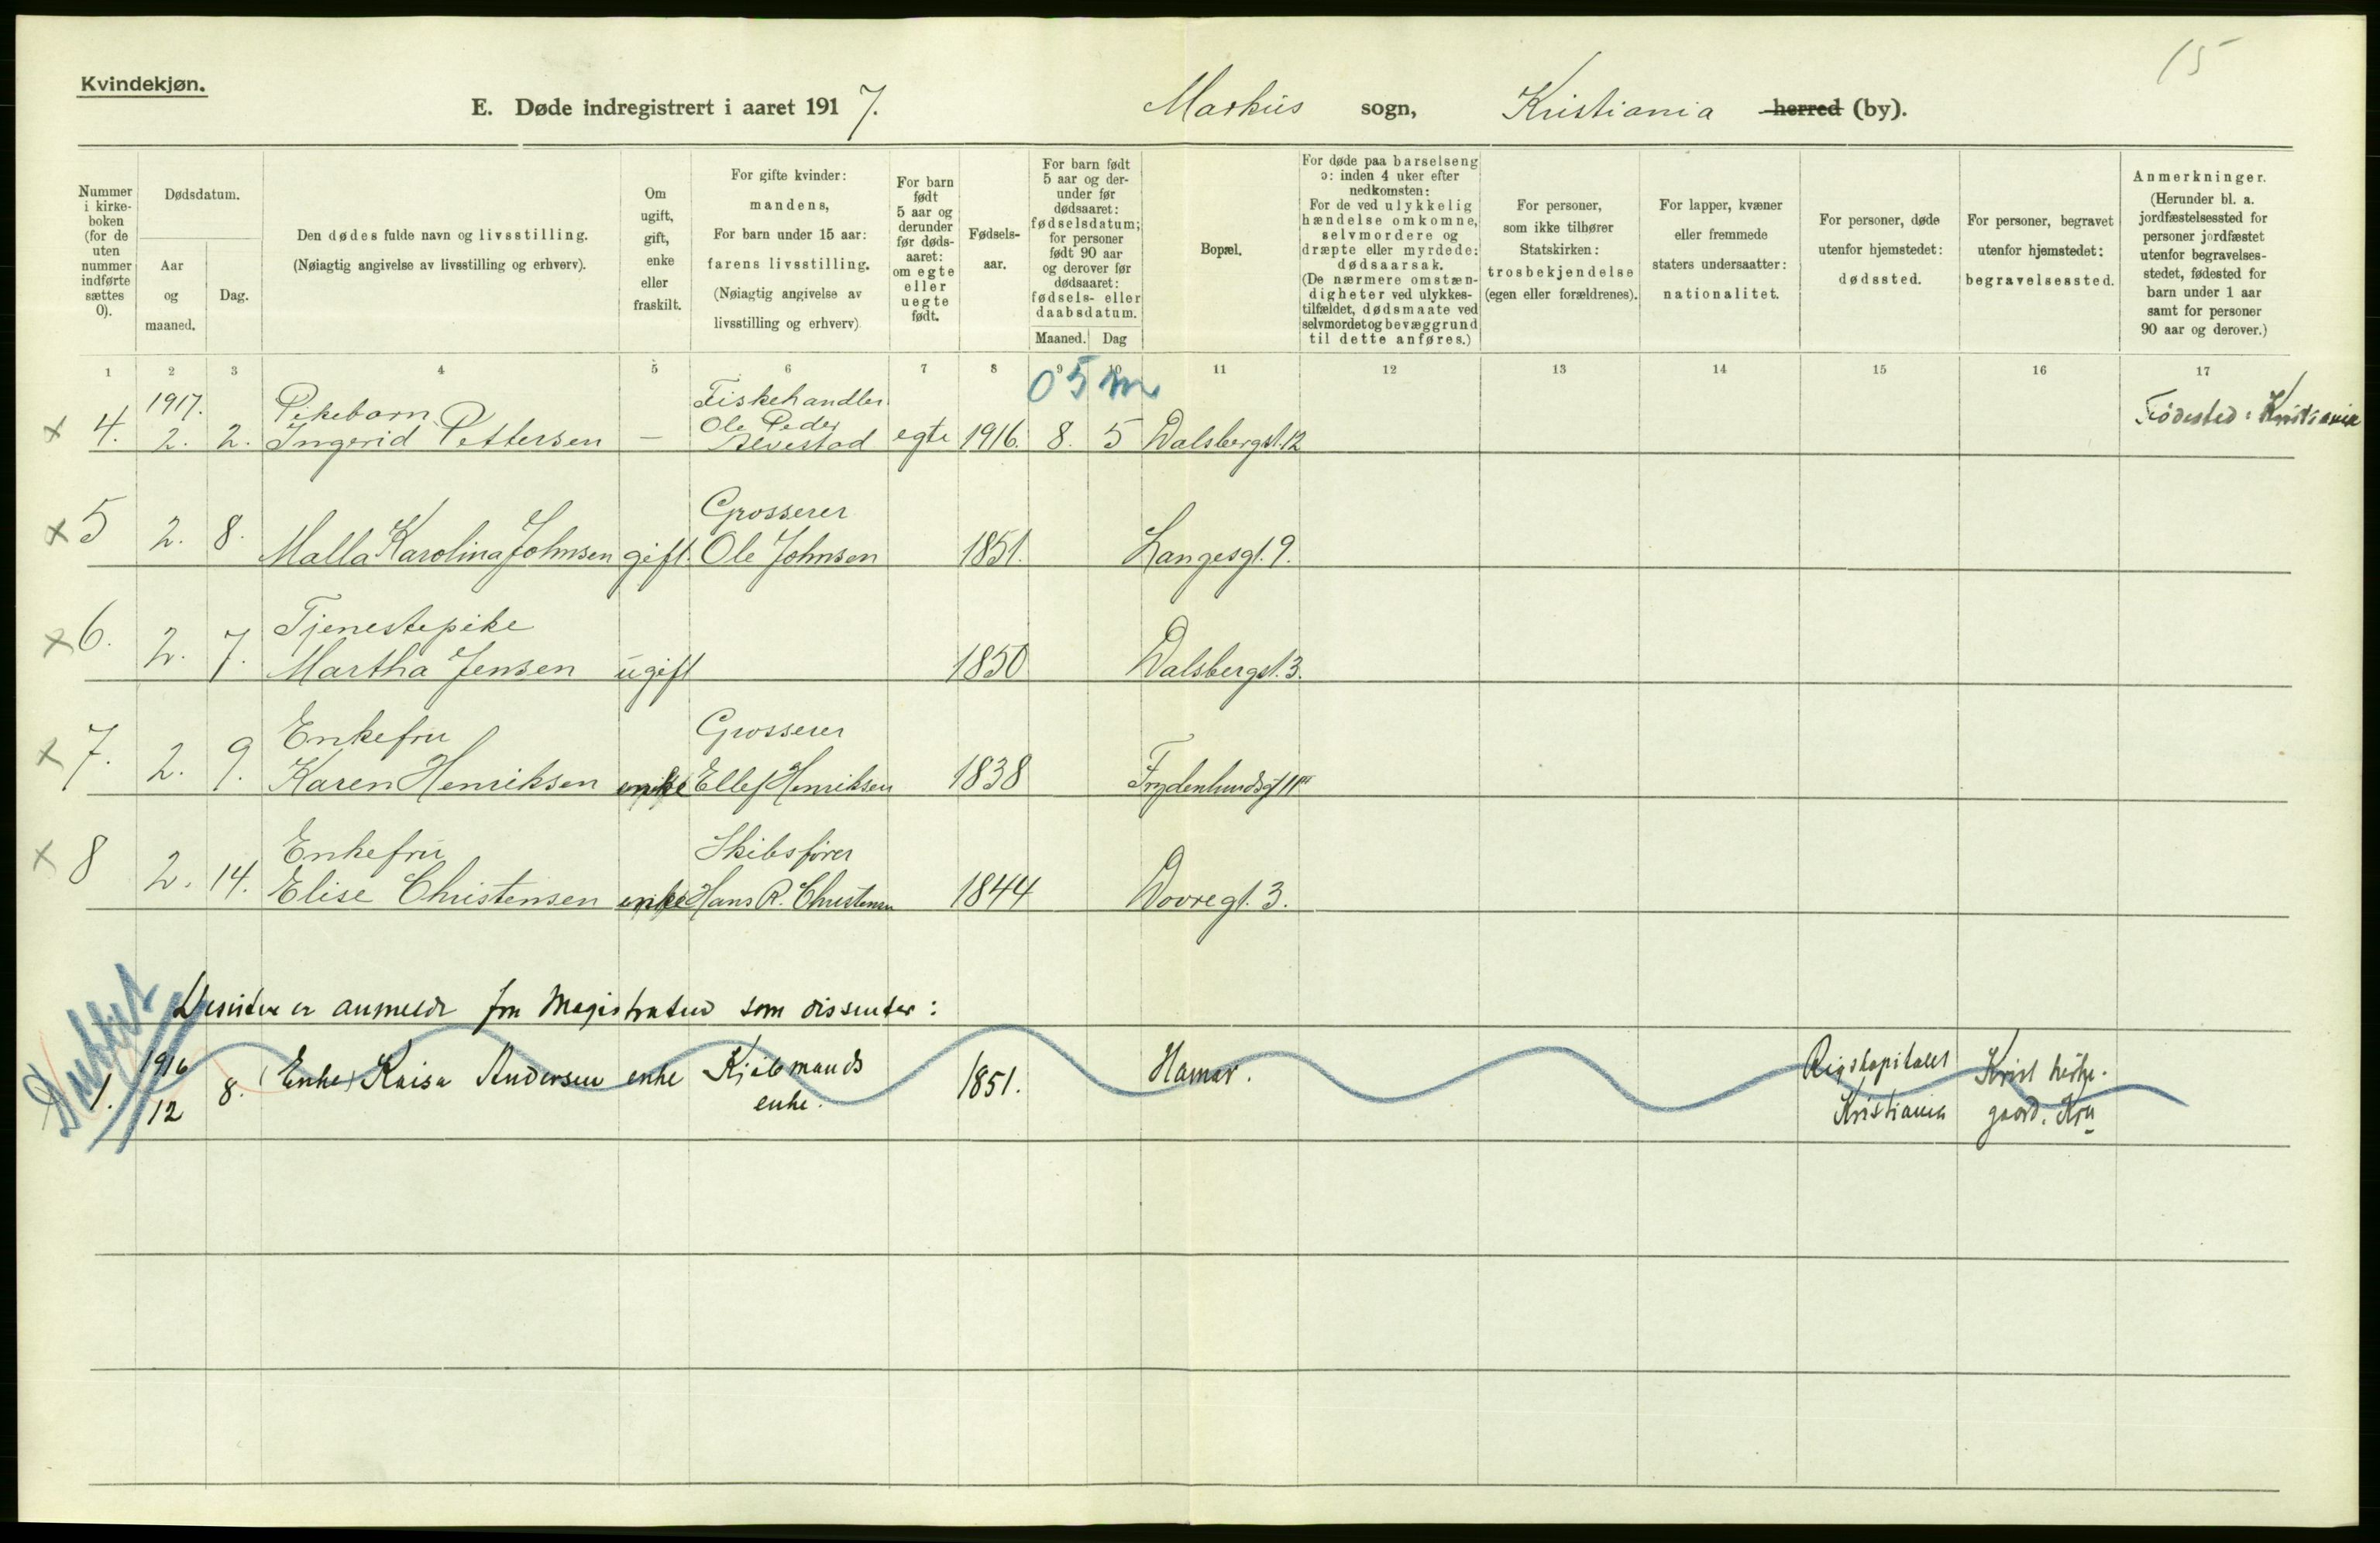 15
Kvindekjøn.
E. Døde indregistrert i aaret 1917. Markus sogn, Kristiania herred (by).
Nummer i kirke-boken (for de uten nummer indførte sættes 0).
Dødsdatum.
Aar og maaned.
Dag.
Den dødes fulde navn og livsstilling.
(Nøiagtig angivelse av livsstilling og erhverv).
Om ugift, gift, enke eller fraskilt.
For gifte kvinder:
mandens,
For barn under 15 aar:
farens livsstilling.
(Nøiagtig angivelse av
livsstilling og erhverv)
For barn født 5 aar og derunder før døds-aaret: om egte eller uegte født.
Fødsels-aar.
For barn født 5 aar og der-under før dødsaaret: fødselsdatum; for personer født 90 aar og derover før dødsaaret: fødsels- eller daabsdatum.
Maaned. Dag
Bopæl.
For døde paa barselseng
ɔ: inden 4 uker efter
nedkomsten:
For de ved ulykkelig
hændelse omkomne,
selvmordere og
dræpte eller myrdede:
dødsaarsak.
(De nærmere omstæn-
digheter ved ulykkes-
tilfældet, dødsmaate ved
selvmordet og bevæggrund
til dette anføres.)
For personer,
som ikke tilhører
Statskirken:
trosbekjendelse
(egen eller forældrenes).
For lapper, kvæner
eller fremmede
staters undersaatter:
nationalitet.
For personer, døde
utenfor hjemstedet:
dødssted.
For personer, begravet
utenfor hjemstedet:
begravelsessted.
Anmerkninger.
(Herunder bl. a.
jordfæstelsessted for
personer jordfæstet
utenfor begravelses-
stedet, fødested for
barn under 1 aar
samt for personer
90 aar og derover.)
1 2 3 4 5 6 7 8 9 10 11 12 13 14 15 16 17
05m
1917. Pikebarn Fiskehandler
x 4. 2. 2. Ingerid Pettersen — Ole Peder Alvestad egte 1916. 8. 5 Dalsbergst. 12 Fødested: Kristiania
Grosserer
x 5 2. 8. Malla Karolina Johnsen gift. Ole Johnsen 1851. Langesgt. 9.
Tjenestepike
x 6. 2. 7. Martha Jensen ugift 1850 Dalsbergst. 3.
Enkefru Grosserer
x 7. 2. 9. Karen Henriksen enke Ellef Henriksen 1838 Frydenlundsgt 11
Enkefru Skibsfører
x 8 2. 14. Elise Christensen enke Hans R. Christensen 1844 Dovregt. 3.
er anmeldt fra Magistraten som dissenter:
1916 Rigshospitalet Krist
1. 12 8. (Enke) Kaisa Andersen enke Kjøbmands enke. 1851. Hamar. Kristiania gaard. Kra